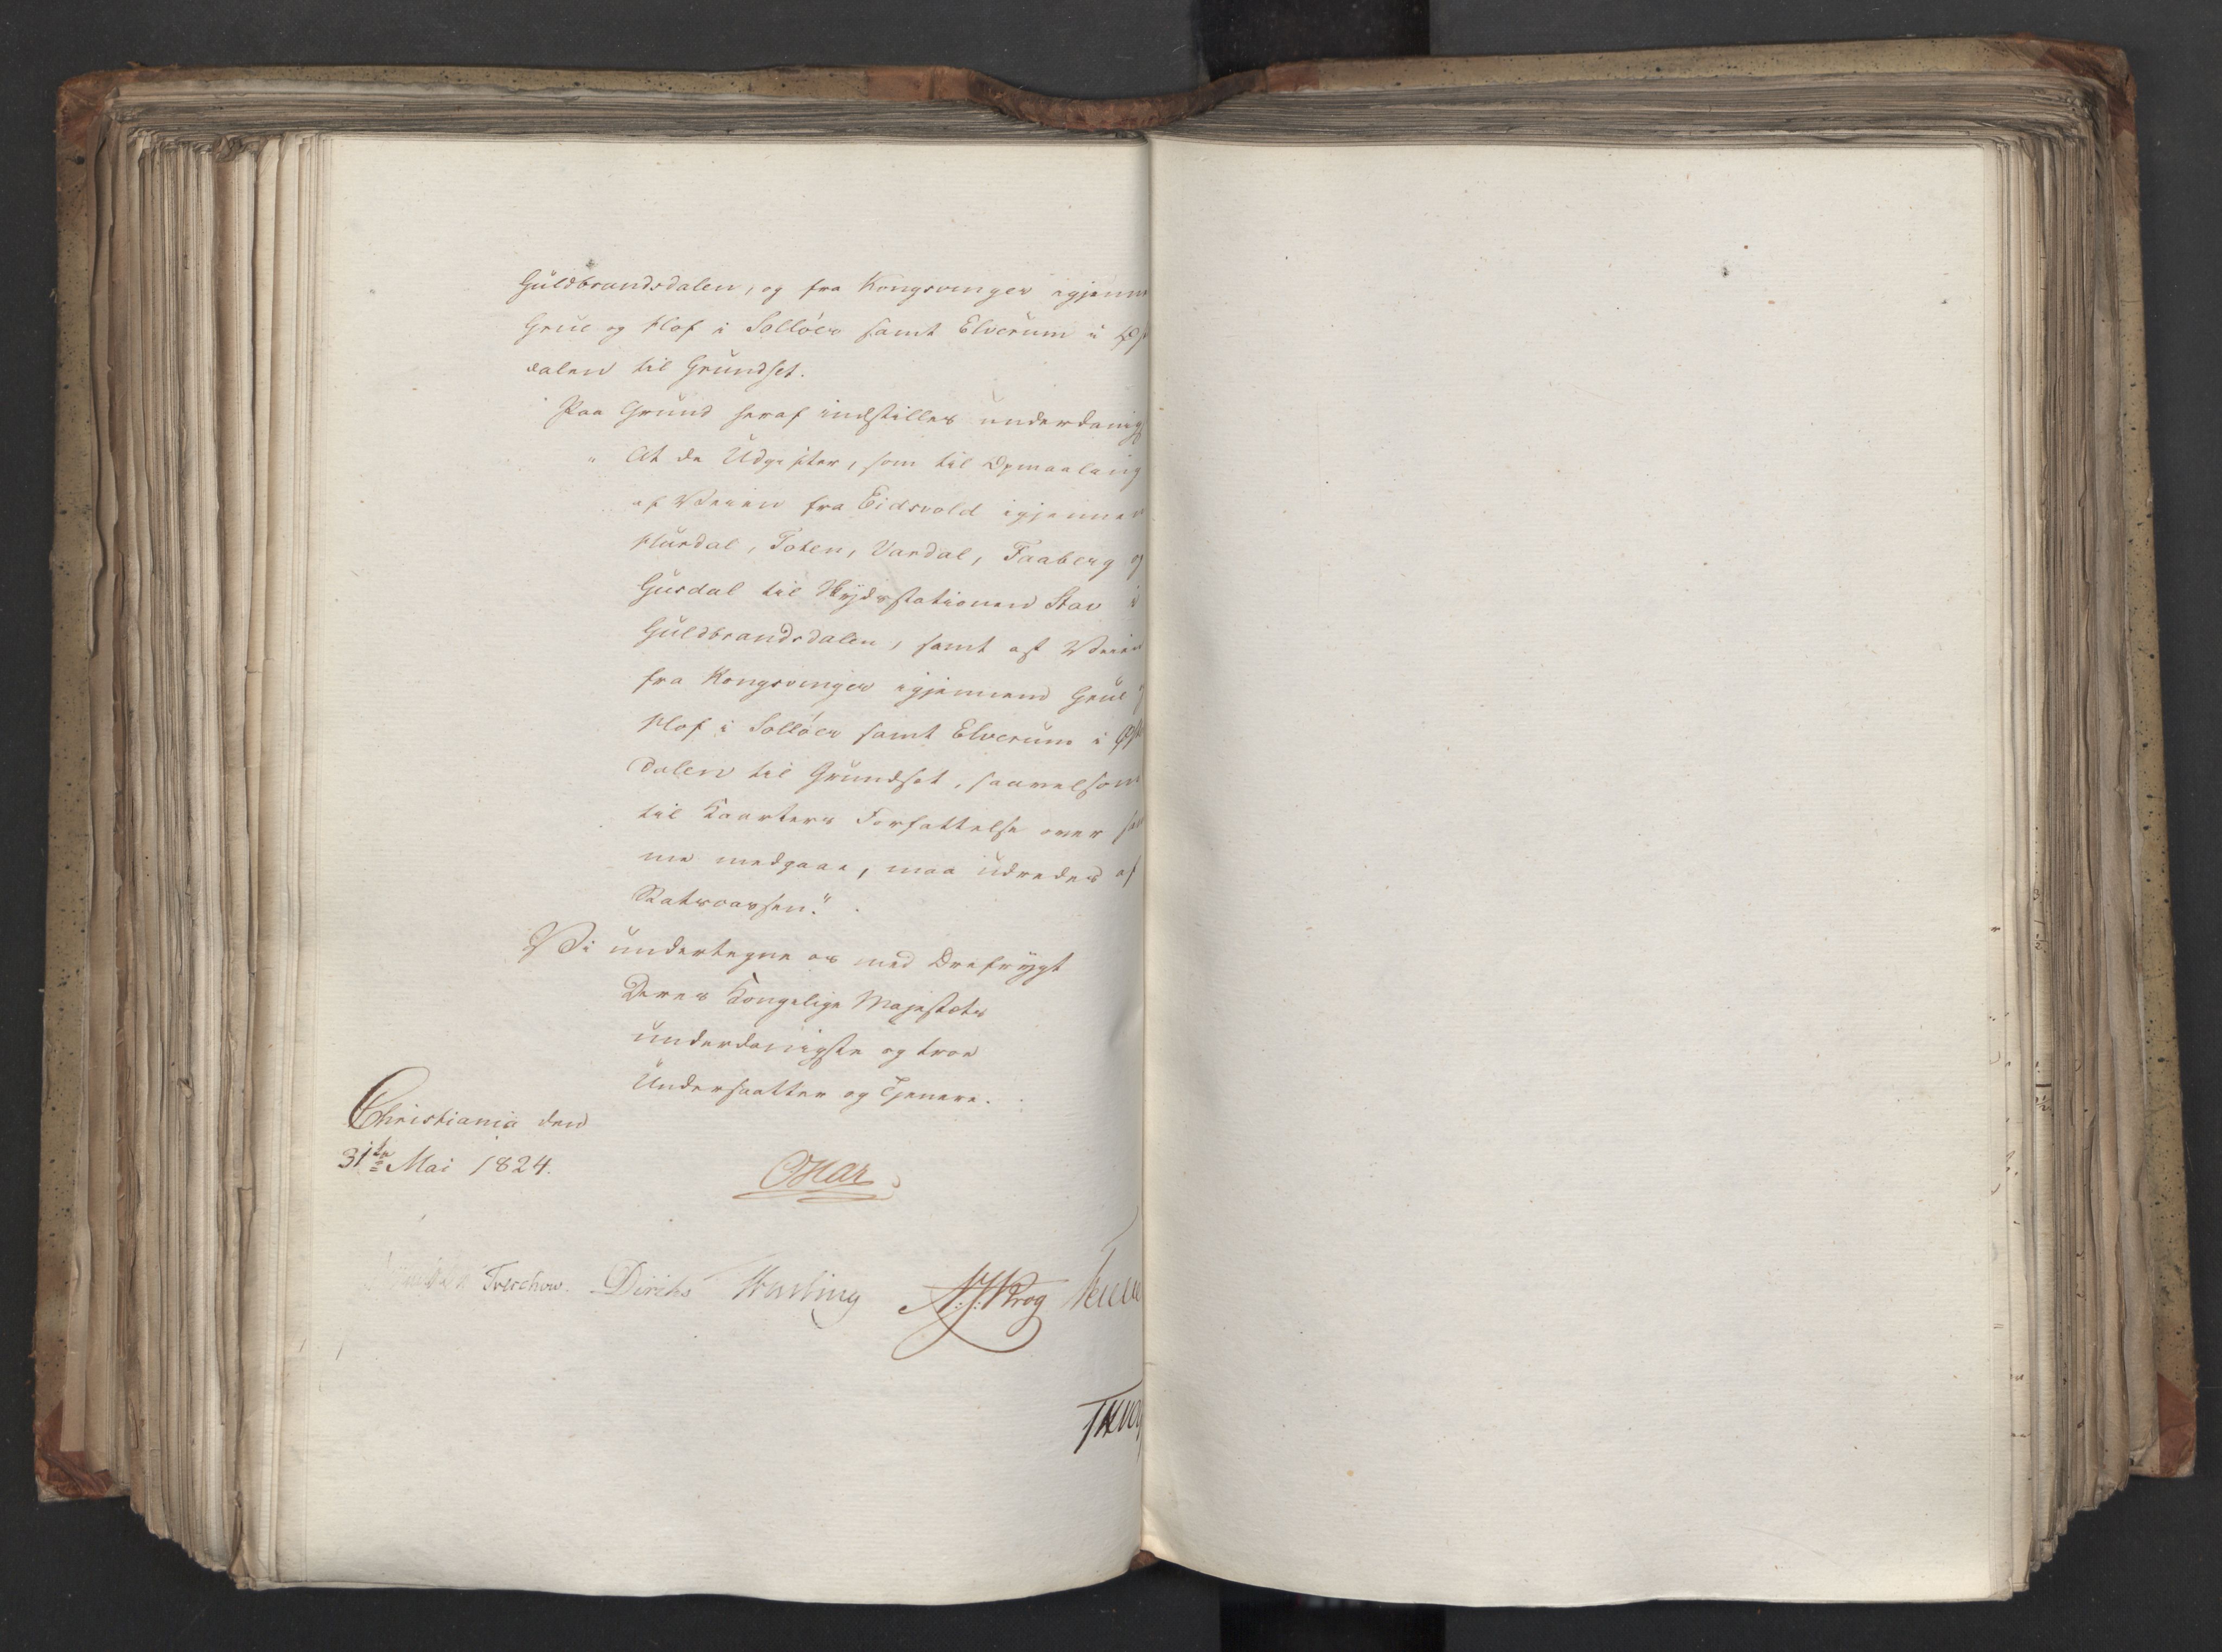 Guldbrandsdalen, og fra Kongsvinger igjenne
Grue og Hof i Solløer samt Elverum i Øst
dalen til Grundset.
Paa Grund heraf indstilles underdanigs
" At de Udgifter, som til Opmaaling
af Veien fra Eidsvold igjennem
Hurdal, Toten, Vardal, Faaberg og
Gusdal til Skydsstationen Stav i
Guldbrandsdalen, samt af Veien
fra Kongsvinger igjennem Grue og
Hof i Solløer samt Elverum i Øster
dalen til Grundset, saavelsom
til Kaarters Forfattelse over sam
me medgaae, maa udredes af
Statscassen."
Vi undertegne os med Ærefrygt
Deres Kongelige Majestæts
underdanigste og troe
Undersaatter og Tjenere.
Christiania den
31te Mai 1824.
Oscar
Treschow. Diriks Hasling A:J:Krog